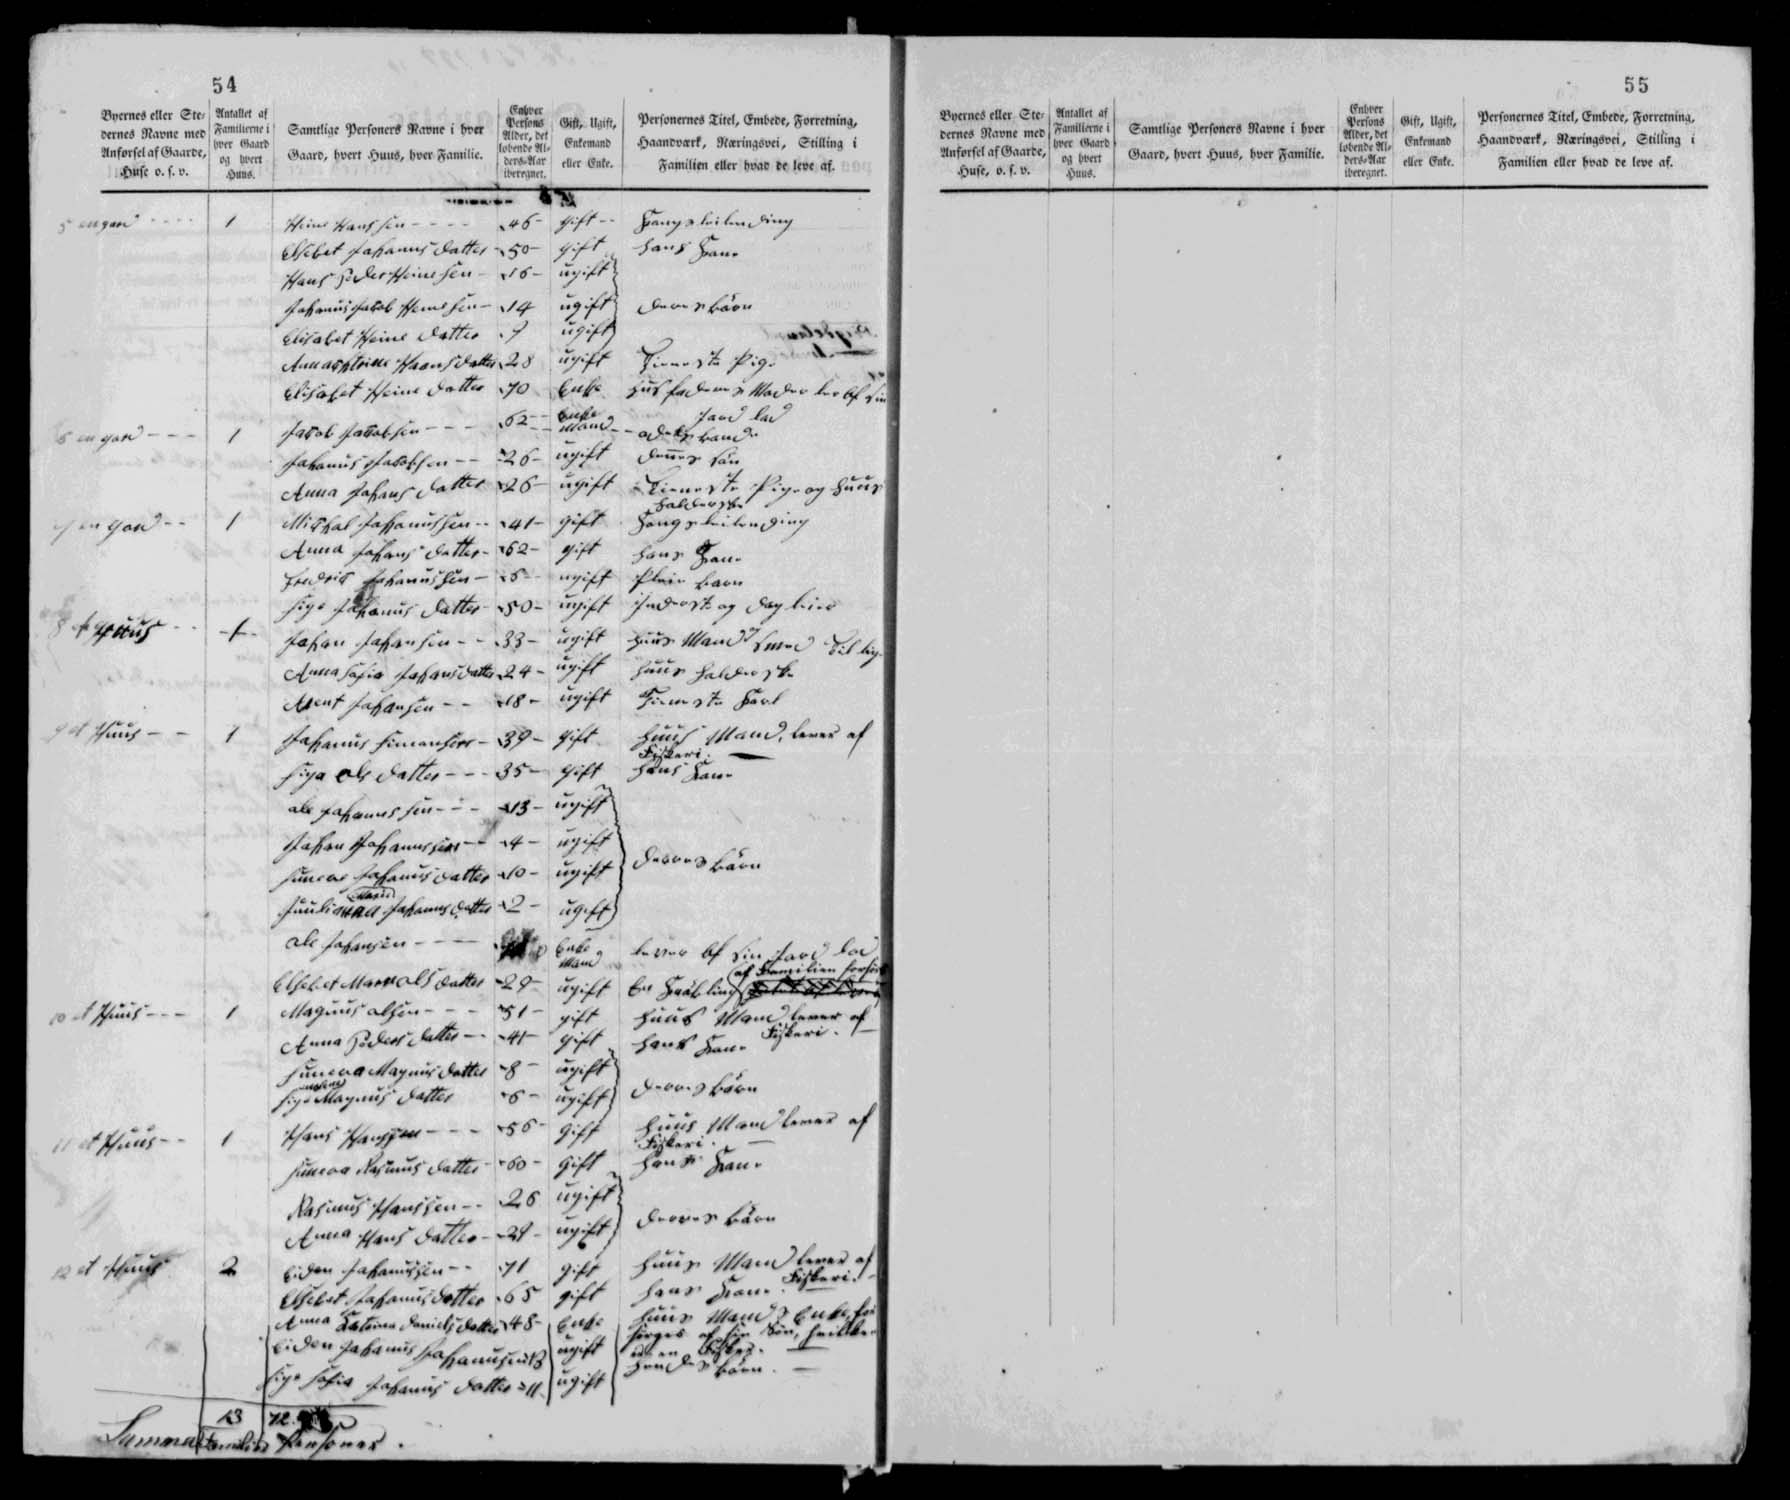 54
Byernes eller Ste-
dernes Navne med
Anførsel af Gaarde,
Huse o. s. v.
Antallet af
Familierne i
hver Gaard
og hvert
Huus.
Samtlige Personers Navne i hver
Gaard, hvert Huus, hver Familie.
Enhver
Persons
Alder, det
løbende Al-
ders-Aar
iberegnet.
Gift, Ugift,
Enkemand
eller Enke.
Personernes Titel, Embede, Forretning,
Haandværk, Næringsvei, Stilling i
Familien eller hvad de leve af.
5 en gaard 1 Heine Hanssen 46 gift
Elsebet Johannus datter 50 gift hans Kone
Hans Peder Heinesen 16 ugift
Johannus Jakob Heinesen 14 ugift deres börn
Elisabet Heine datter 7 ugift
Hans datter 28 ugift Tieneste Pige
Elisabet Heine datter 70 Enke Hus faderens Moder
6 en gaard 1 Jakob Jakobsen 62 Enke Mand
Johannus Jakobsen 26 ugift dennes sön
Anna Johans datter 26 ugift Tieneste Pige og huus
holderske
7 en gaard 1 Mikkal Johannussen 41 gift
Anna Johans datter 62 gift hans Kone
Fredrik Johannussen 6 ugift Pleie barn
Sige Johannus datter 50 ugift
8 et Huus 1 Johan Johansen 33 ugift Huus Mand
Anna Sofia Johans datter 24 ugift huus holderske
Johansen 18 ugift Tieneste Karl
9 et Huus 1 Johannus Simonsen 39 gift Huus Mand, lever af
Fiskeri.
Siga Ols datter 35 gift hans Kone
Ole Johannussen 13 ugift
Johan Johannussen 4 ugift
Suneva Johannus datter 10 ugift deres börn
Johannus datter 2 ugift
Ole Johansen Enke
Mand lever af sin Jord lod
Elsebet Ols datter 29 ugift
af Familien
10 et Huus 1 Magnus Olsen 51 gift Huus Mand lever af
Fiskeri.
Anna Peders datter 41 gift hans Kone
Suneva Magnus datter 8 ugift
Sige Magnus datter 6 ugift deres börn
11 et Huus 1 Hans Hanssen 56 gift Huus Mand lever af
Fiskeri.
Suneva Rasmus datter 60 gift hans Kone
Rasmus Hanssen 26 ugift
Anna Hans datter ugift deres börn
12 et Huus 2 Eiden Johannussen 71 gift Huus Mand lever af
Fiskeri.
Elsebet Johannus datter 65 gift hans Kone
Anna Katrina Daniels datter 48 Enke Huus Mands Enke, for
sörges af sin Sön, hvilken
er en Fisker.
Eiden Johannus Johannussen ugift
Sige Sofia Johannus datter 11 ugift hendes börn.
13 72
Summa Familier Personer.
55
Byernes eller Ste-
dernes Navne med
Anførsel af Gaarde,
Huse, o. s. v.
Antallet af
Familierne i
hver Gaard
og hvert
Huus.
Samtlige Personers Navne i hver
Gaard, hvert Huus, hver Familie.
Enhver
Persons
Alder, det
løbende Al-
ders-Aar
iberegnet.
Gift, Ugift,
Enkemand
eller Enke.
Personernes Titel, Embede, Forretning,
Haandværk, Næringsvei, Stilling i
Familien eller hvad de leve af.